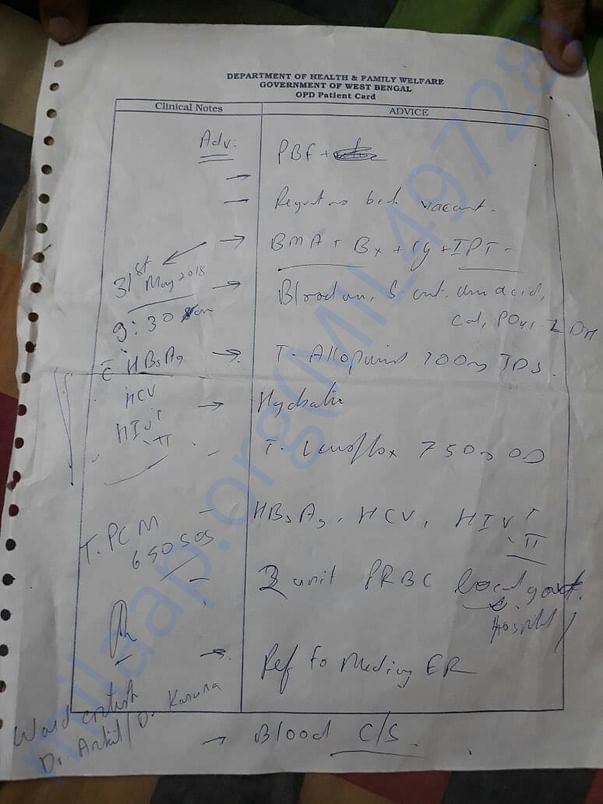 DEPARTMENT OF HEALTH & FAMILY WELFARE
GOVERNMENT OF WEST BENGAL
OPD Patient Card
Clinical Notes
ADVICE
Adv.
PBF +
bed vacant.
31st May 2018
BMA + Bx + Cy + IPT
9:30 am
Blood urea, S. creat. uric acid,
Cal, PO4, LDH
C HBsAg
HCV
HIV I
II
T. Allopurinol 100mg TDS
Hydration
T. Levoflox 750mg OD
HBsAg, HCV, HIV I
II
T. PCM
650 SOS
2 unit PRBC local govt.
Hospital
Ref to Medicine ER
Ward
Dr. Ankit / Dr. Karuna
Blood C/S
milaap.org(MIL49728)